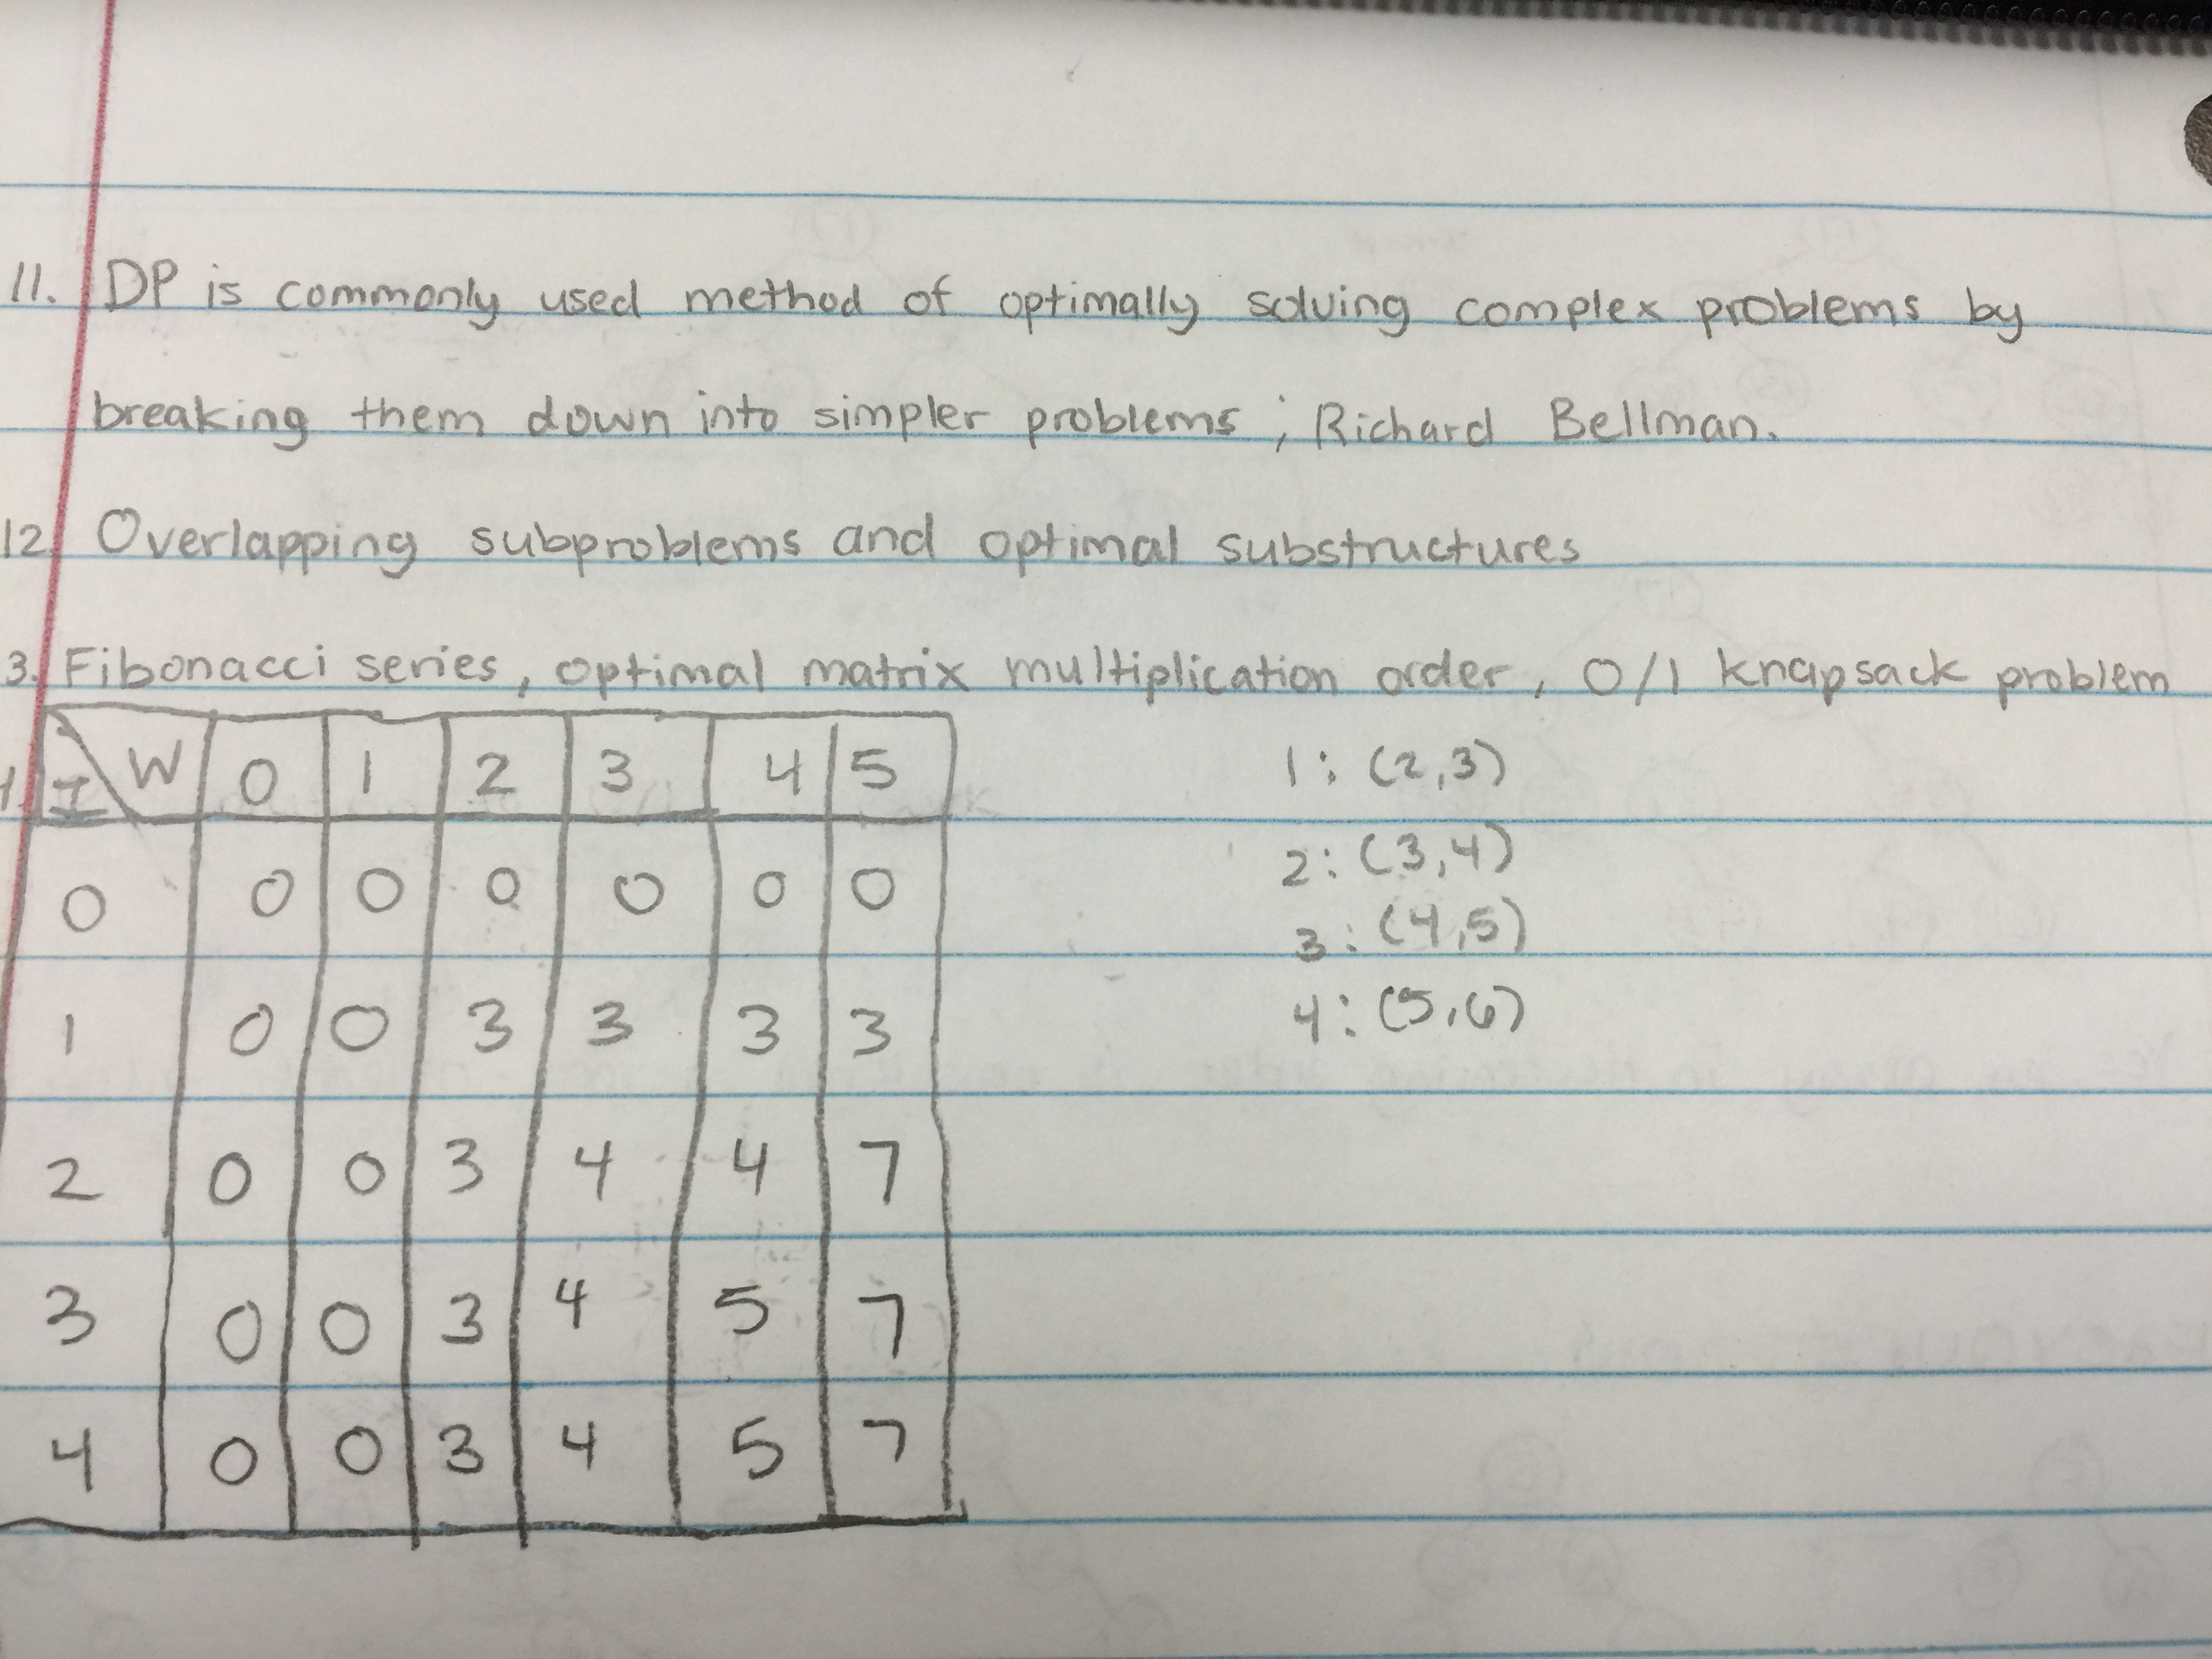 11. DP is commonly used method of optimally solving complex problems by
breaking them down into simpler problems; Richard Bellman.
12. Overlapping subproblems and optimal substructures
3. Fibonacci series, optimal matrix multiplication order, 0/1 knapsack problem
I W 0 1 2 3 4 5
0 0 0 0 0 0 0
1 0 0 3 3 3 3
2 0 0 3 4 4 7
3 0 0 3 4 5 7
4 0 0 3 4 5 7
1: (2,3)
2: (3,4)
3: (4,5)
4: (5,6)